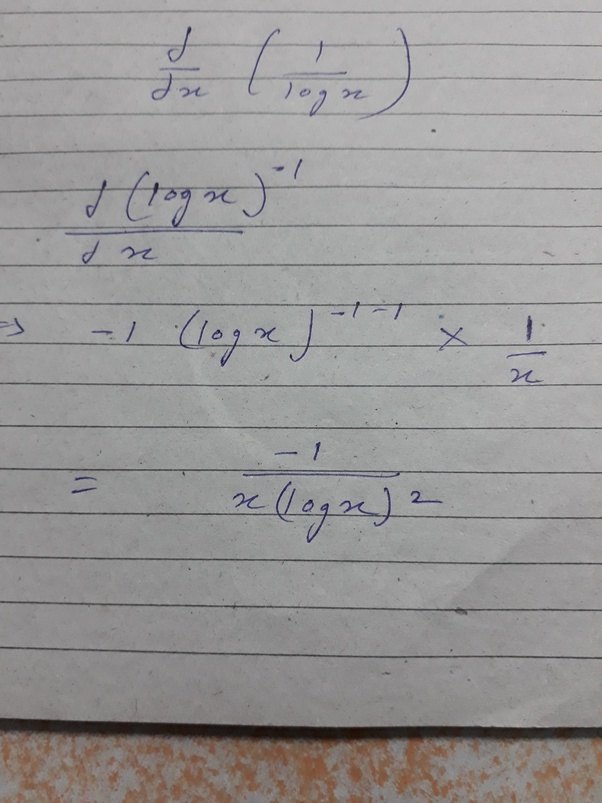 d/dx (1/log x)
d(log x)^-1/dx
⇒ -1 (log x)^-1-1 × 1/x
= -1/x(log x)^2